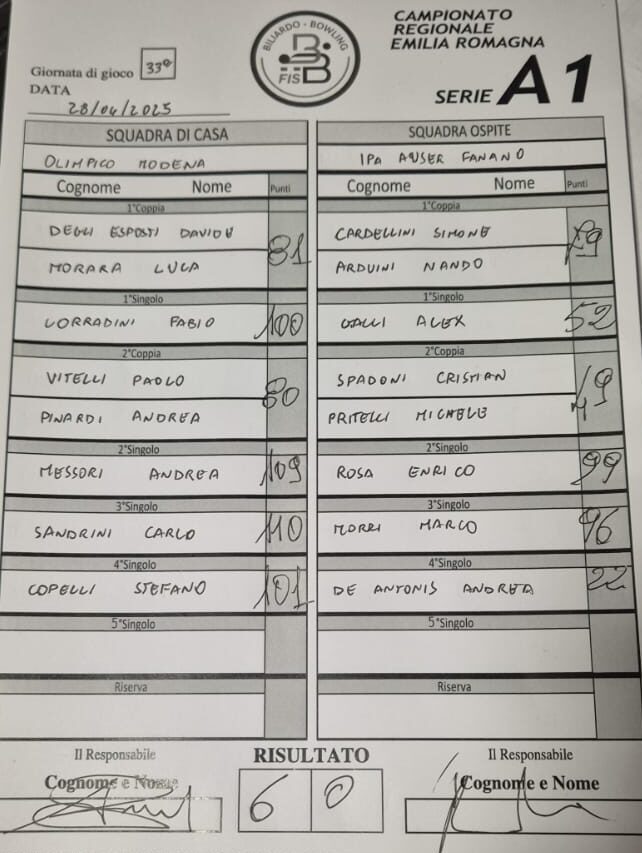 CAMPIONATO
REGIONALE
EMILIA ROMAGNA
SERIE A1
BILIARDO - BOWLING
FISBB
Giornata di gioco 33ª
DATA
28/04/2025
SQUADRA DI CASA SQUADRA OSPITE
OLIMPICO MODENA IPA AUSER FANANO
Cognome Nome Punti Cognome Nome Punti
1°Coppia 1°Coppia
DEGLI ESPOSTI DAVIDE 81 CARDELLINI SIMONE
MORARA LUCA ARDUINI NANDO
1°Singolo 1°Singolo
CORRADINI FABIO 100 GALLI ALEX 52
2°Coppia 2°Coppia
VITELLI PAOLO 80 SPADONI CRISTIAN 49
PINARDI ANDREA PRITELLI MICHELE
2°Singolo 2°Singolo
MESSORI ANDREA 109 ROSA ENRICO 99
3°Singolo 3°Singolo
SANDRINI CARLO 110 MORRI MARCO 96
4°Singolo 4°Singolo
COPELLI STEFANO 101 DE ANTONIS ANDREA 22
5°Singolo 5°Singolo
Riserva Riserva
Il Responsabile RISULTATO Il Responsabile
Cognome e Nome 6 0 Cognome e Nome